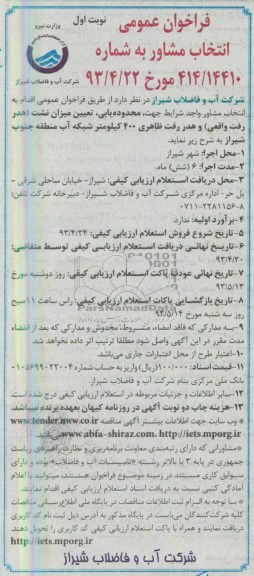 وزارت نیرو
شرکت آب و فاضلاب شیراز
نوبت اول
فراخوان عمومی
انتخاب مشاور به شماره
۴۱۴/۱۴۴۱۰ مورخ ۹۳/۴/۲۲
شرکت آب و فاضلاب شیراز در نظر دارد از طریق فراخوان عمومی اقدام به
انتخاب مشاور واجد شرایط جهت، محدوده‌یابی، تعیین میزان نشت (هدر
رفت واقعی) و هدر رفت ظاهری ۴۰۰ کیلومتر شبکه آب منطقه جنوب
شیراز به شرح زیر نماید.
۱-محل اجرا: شهر شیراز
۲-مدت اجرا: ۶ (شش) ماه.
۳-محل دریافت استعلام ارزیابی کیفی: شیراز- خیابان ساحلی شرقی -
پل حر- اداره مرکزی شرکت آب و فاضلاب شیراز- دبیرخانه شرکت تلفن:
۸-۲۲۸۱۱۵۶-۰۷۱۱
۴-برآورد اولیه: ندارد.
۵-تاریخ شروع فروش استعلام ارزیابی کیفی: ۹۳/۴/۲۴
۶-تاریخ نهائی دریافت استعلام ارزیابی کیفی توسط متقاضی:
۹۳/۴/۳۰
۷-تاریخ نهائی عودت پاکت استعلام ارزیابی کیفی: روز دوشنبه مورخ
۹۳/۵/۱۳
۸-تاریخ بازگشایی پاکات استعلام ارزیابی کیفی: راس ساعت ۱۱ صبح
روز سه شنبه مورخ ۹۳/۵/۱۴
۹-به مدارکی که فاقد امضاء، مشروط، مخدوش و مدارکی که بعد از انقضاء
مدت مقرر در این آگهی واصل شود مطلقا ترتیب اثر داده نخواهد شد.
۱۰-اعتبار طرح از محل اعتبارات جاری می‌باشد.
۱۱-قیمت اسناد: ۱۰۰/۰۰۰ ریال) واریز به حساب شماره ۰۱۰۵۶۹۹۰۲۲۰۰۴
بانک ملی مرکزی بنام شرکت آب و فاضلاب شیراز.
۱۲-سایر اطلاعات و جزئیات مربوطه در استعلام ارزیابی کیفی درج شده است.
۱۳-هزینه چاپ دو نوبت آگهی در روزنامه کیهان بعهده برنده میباشد.
* وب سایت جهت اطلاعات بیشتر آگهی مناقصه www.tender.nww.co.ir
www.abfa-shiraz.com. http://iets.mporg.ir
*مشاورانی که دارای رتبه‌بندی معاونت برنامه‌ریزی و نظارت راهبردی ریاست
جمهوری در پایه ۳ یا بالاتر رشته «تاسیسات آب و فاضلاب» بوده و دارای
سوابق کاری مستند در زمینه موضوع فراخوان هستند، میتوانند با اعلام
آمادگی کتبی نسبت به دریافت اسناد استعلام ارزیابی کیفی اقدام نمایند.
http://iets.mporg.ir
شرکت آب و فاضلاب شیراز